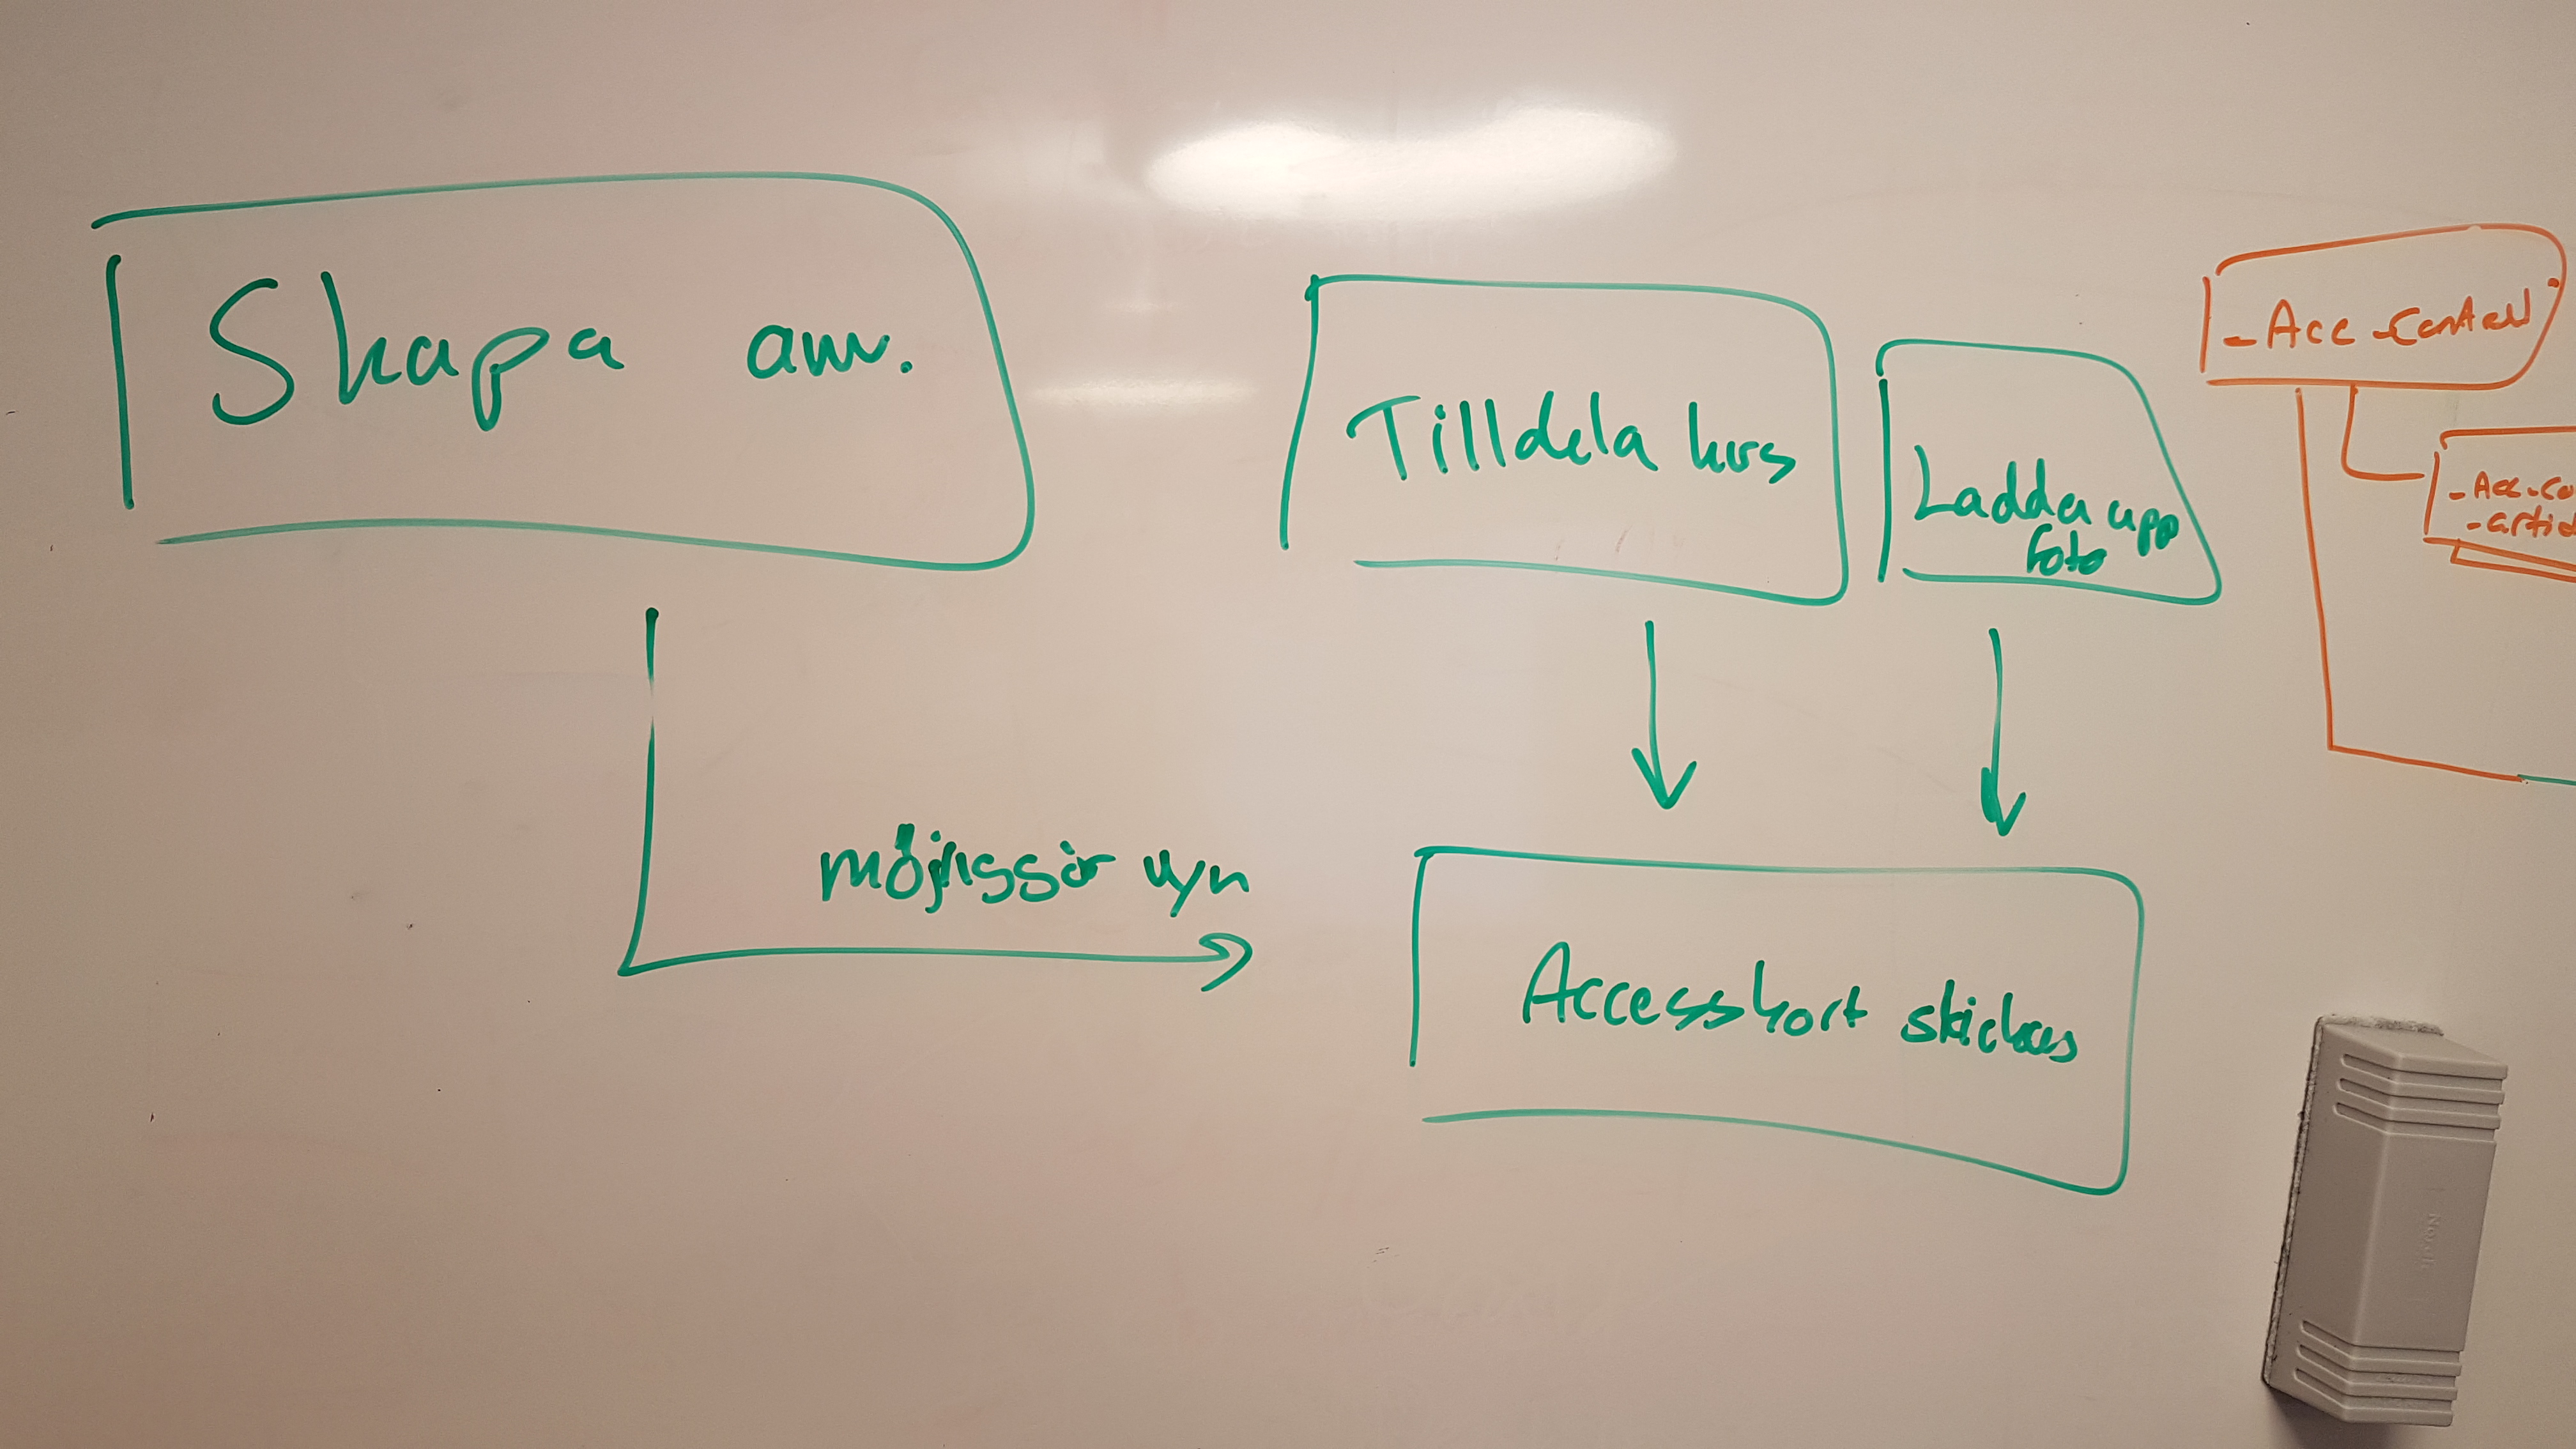 Skapa anv.
Tilldela kurs
Ladda upp
foto
möjliggör vyn
Accesskort skickas
-Acc-Content
-Acc-Co
-artic